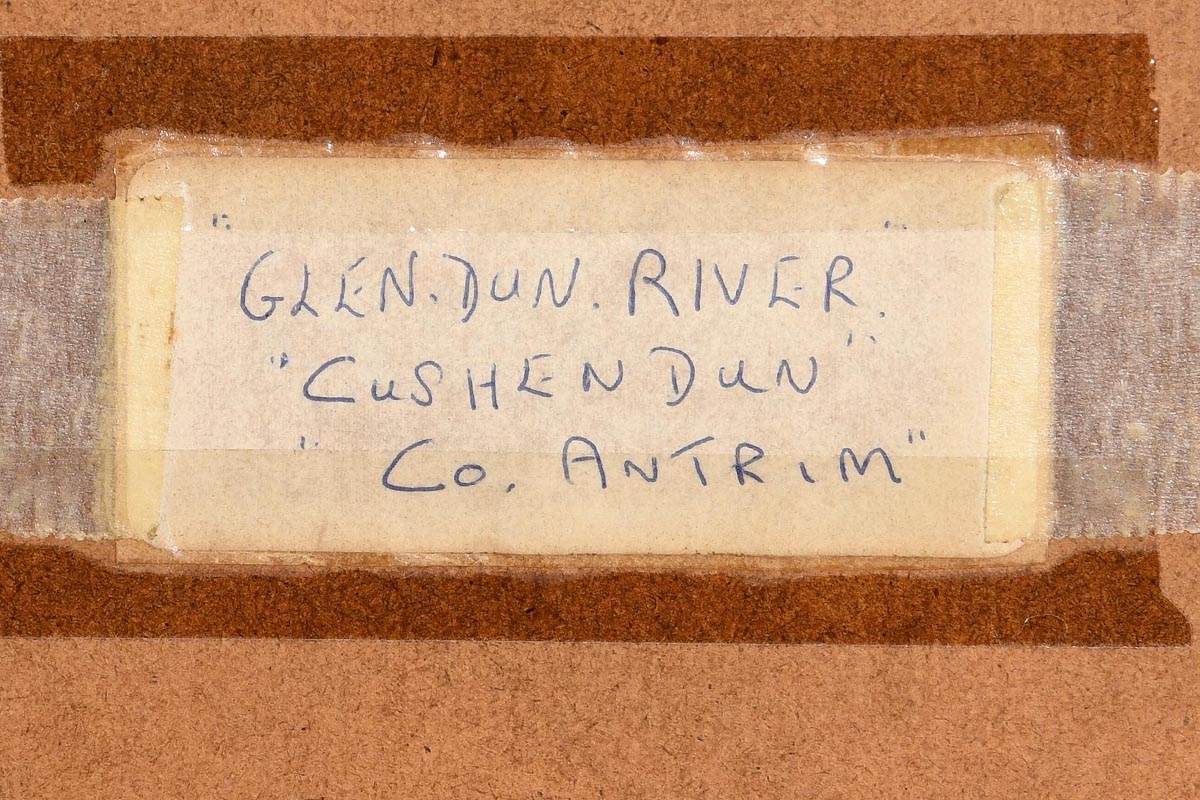 "GLEN.DUN. RIVER."
"CUSHENDUN"
"CO. ANTRIM"